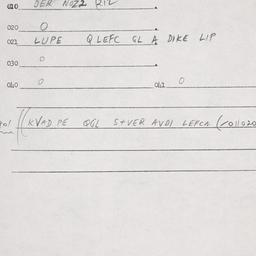 010 DER NOZZ RIL
020 O
021 LUPE QLEFC GL A DIKE LIP
030 O
040 O 041 O
KVAD PE QGL S+VER AVDI LEFCA (/011020